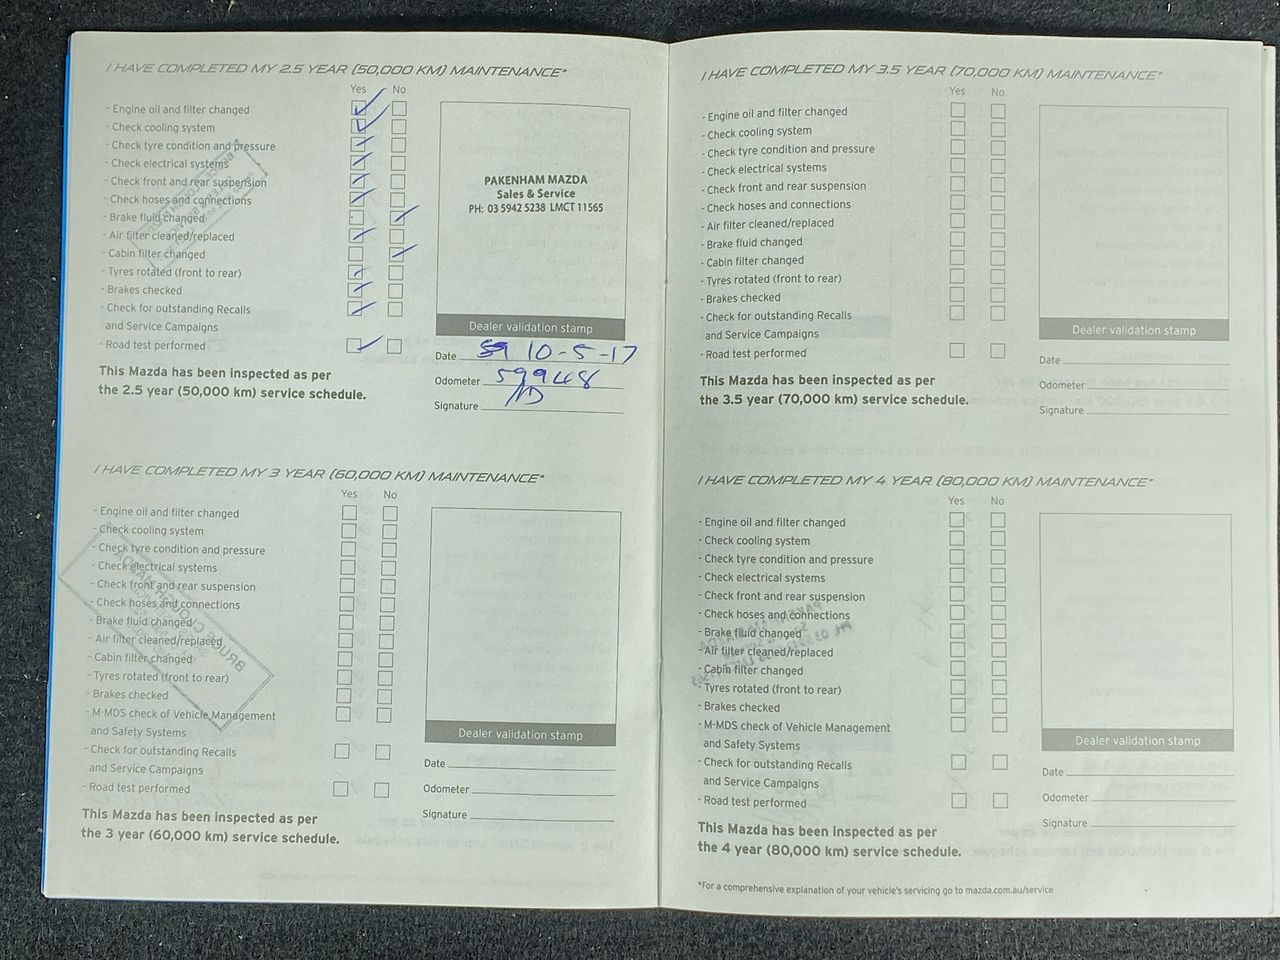 I HAVE COMPLETED MY 2.5 YEAR (50,000 KM) MAINTENANCE*
Yes No
- Engine oil and filter changed
- Check cooling system
- Check tyre condition and pressure
- Check electrical systems
- Check front and rear suspension
- Check hoses and connections
- Brake fluid changed
- Air filter cleaned/replaced
- Cabin filter changed
- Tyres rotated (front to rear)
- Brakes checked
- Check for outstanding Recalls
and Service Campaigns
- Road test performed
This Mazda has been inspected as per
the 2.5 year (50,000 km) service schedule.
PAKENHAM MAZDA
Sales & Service
PH: 03 5942 5238 LMCT 11565
Dealer validation stamp
Date 10-5-17
Odometer 59948
Signature
I HAVE COMPLETED MY 3 YEAR (60,000 KM) MAINTENANCE*
Yes No
- Engine oil and filter changed
- Check cooling system
- Check tyre condition and pressure
- Check electrical systems
- Check front and rear suspension
- Check hoses and connections
- Brake fluid changed
- Air filter cleaned/replaced
- Cabin filter changed
- Tyres rotated (front to rear)
- Brakes checked
- M-MDS check of Vehicle Management
and Safety Systems
- Check for outstanding Recalls
and Service Campaigns
- Road test performed
This Mazda has been inspected as per
the 3 year (60,000 km) service schedule.
Dealer validation stamp
Date
Odometer
Signature
I HAVE COMPLETED MY 3.5 YEAR (70,000 KM) MAINTENANCE*
Yes No
- Engine oil and filter changed
- Check cooling system
- Check tyre condition and pressure
- Check electrical systems
- Check front and rear suspension
- Check hoses and connections
- Air filter cleaned/replaced
- Brake fluid changed
- Cabin filter changed
- Tyres rotated (front to rear)
- Brakes checked
- Check for outstanding Recalls
and Service Campaigns
- Road test performed
This Mazda has been inspected as per
the 3.5 year (70,000 km) service schedule.
Dealer validation stamp
Date
Odometer
Signature
I HAVE COMPLETED MY 4 YEAR (80,000 KM) MAINTENANCE*
Yes No
- Engine oil and filter changed
- Check cooling system
- Check tyre condition and pressure
- Check electrical systems
- Check front and rear suspension
- Check hoses and connections
- Brake fluid changed
- Air filter cleaned/replaced
- Cabin filter changed
- Tyres rotated (front to rear)
- Brakes checked
- M-MDS check of Vehicle Management
and Safety Systems
- Check for outstanding Recalls
and Service Campaigns
- Road test performed
This Mazda has been inspected as per
the 4 year (80,000 km) service schedule.
Dealer validation stamp
Date
Odometer
Signature
*For a comprehensive explanation of your vehicle's servicing go to mazda.com.au/service